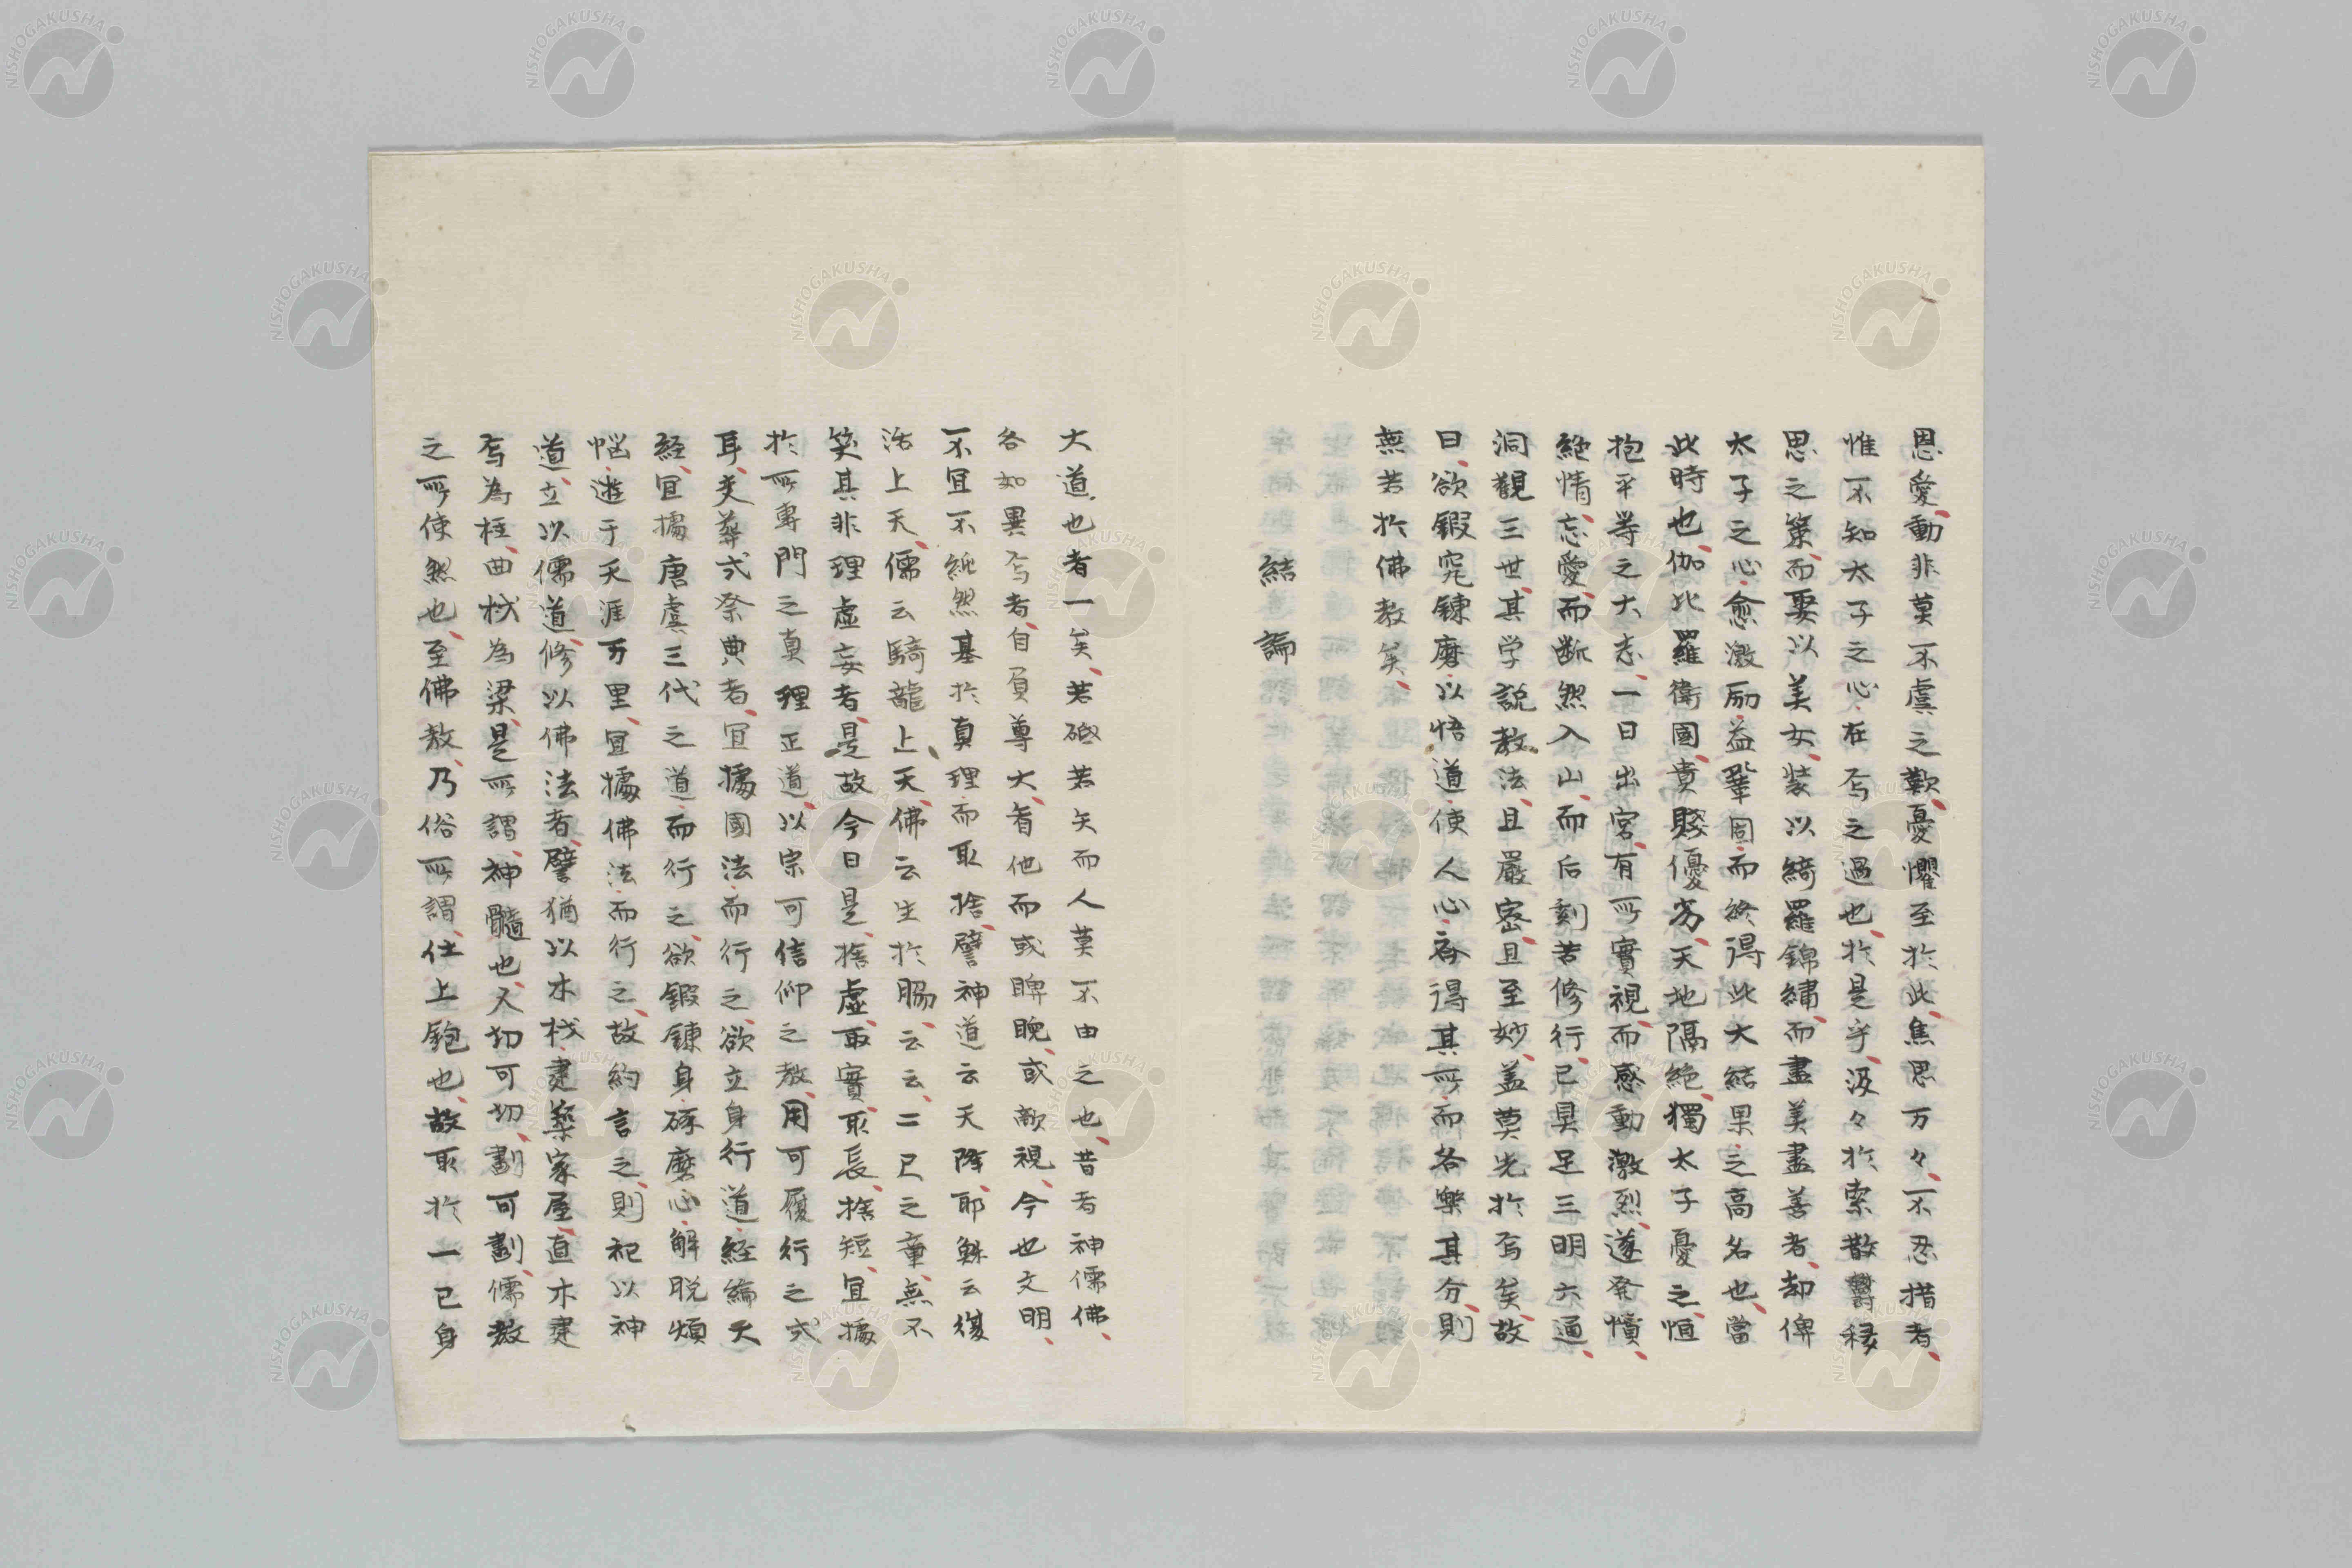 恩愛動非莫不虞之歎憂懼至於此焦思万々不忍措者
惟不知太子之心在焉之過也於是乎汲々於索散鬱穏
思之策而娶以美女裝以綺羅錦繡而盡美盡善者却俾
太子之心愈激励益鞏固而終得此大結果之高名也當
此時也伽比羅衛國貴賤優劣天地隔絶獨太子憂之恒
抱平等之大志一日出宮有所實視而感動激烈遂発憤
絶情忘愛而断然入山而后刻苦修行已具足三明六通
洞觀三世其学説教法且嚴密且至妙盖莫先於焉矣故
曰欲鍜究錬磨以悟道使人心各得其所而各樂其分則
無若於佛教矣
結論
大道也者一矣若砥若矢而人莫不由之也昔者神儒佛
各如異焉者自負尊大看他而或睥睨或敵視今也文明
不宜不純然基於真理而取捨譬神道云天降耶穌云復
活上天儒云騎龍上天佛云生於腸云云二已之章無不
笑其非理虚妄者是故今日是捨虚取實取長捨短宜據
於所專門之真理正道以宗可信仰之教用可履行之式
耳夫葬式祭典者宜據國法而行之欲立身行道経綸天
経宜據唐虞三代之道而行之欲鍜錬身琢磨心解脱煩
悩遊于天涯万里宜據佛法而行之故約言之則祀以神
道立以儒道修以佛法者譬猶以木材建築家屋直木建
焉為柱曲材為梁是所謂神髓也又切可切劃可劃儒教
之所使然也至佛教乃俗所謂仕上鉋也故取於一已身